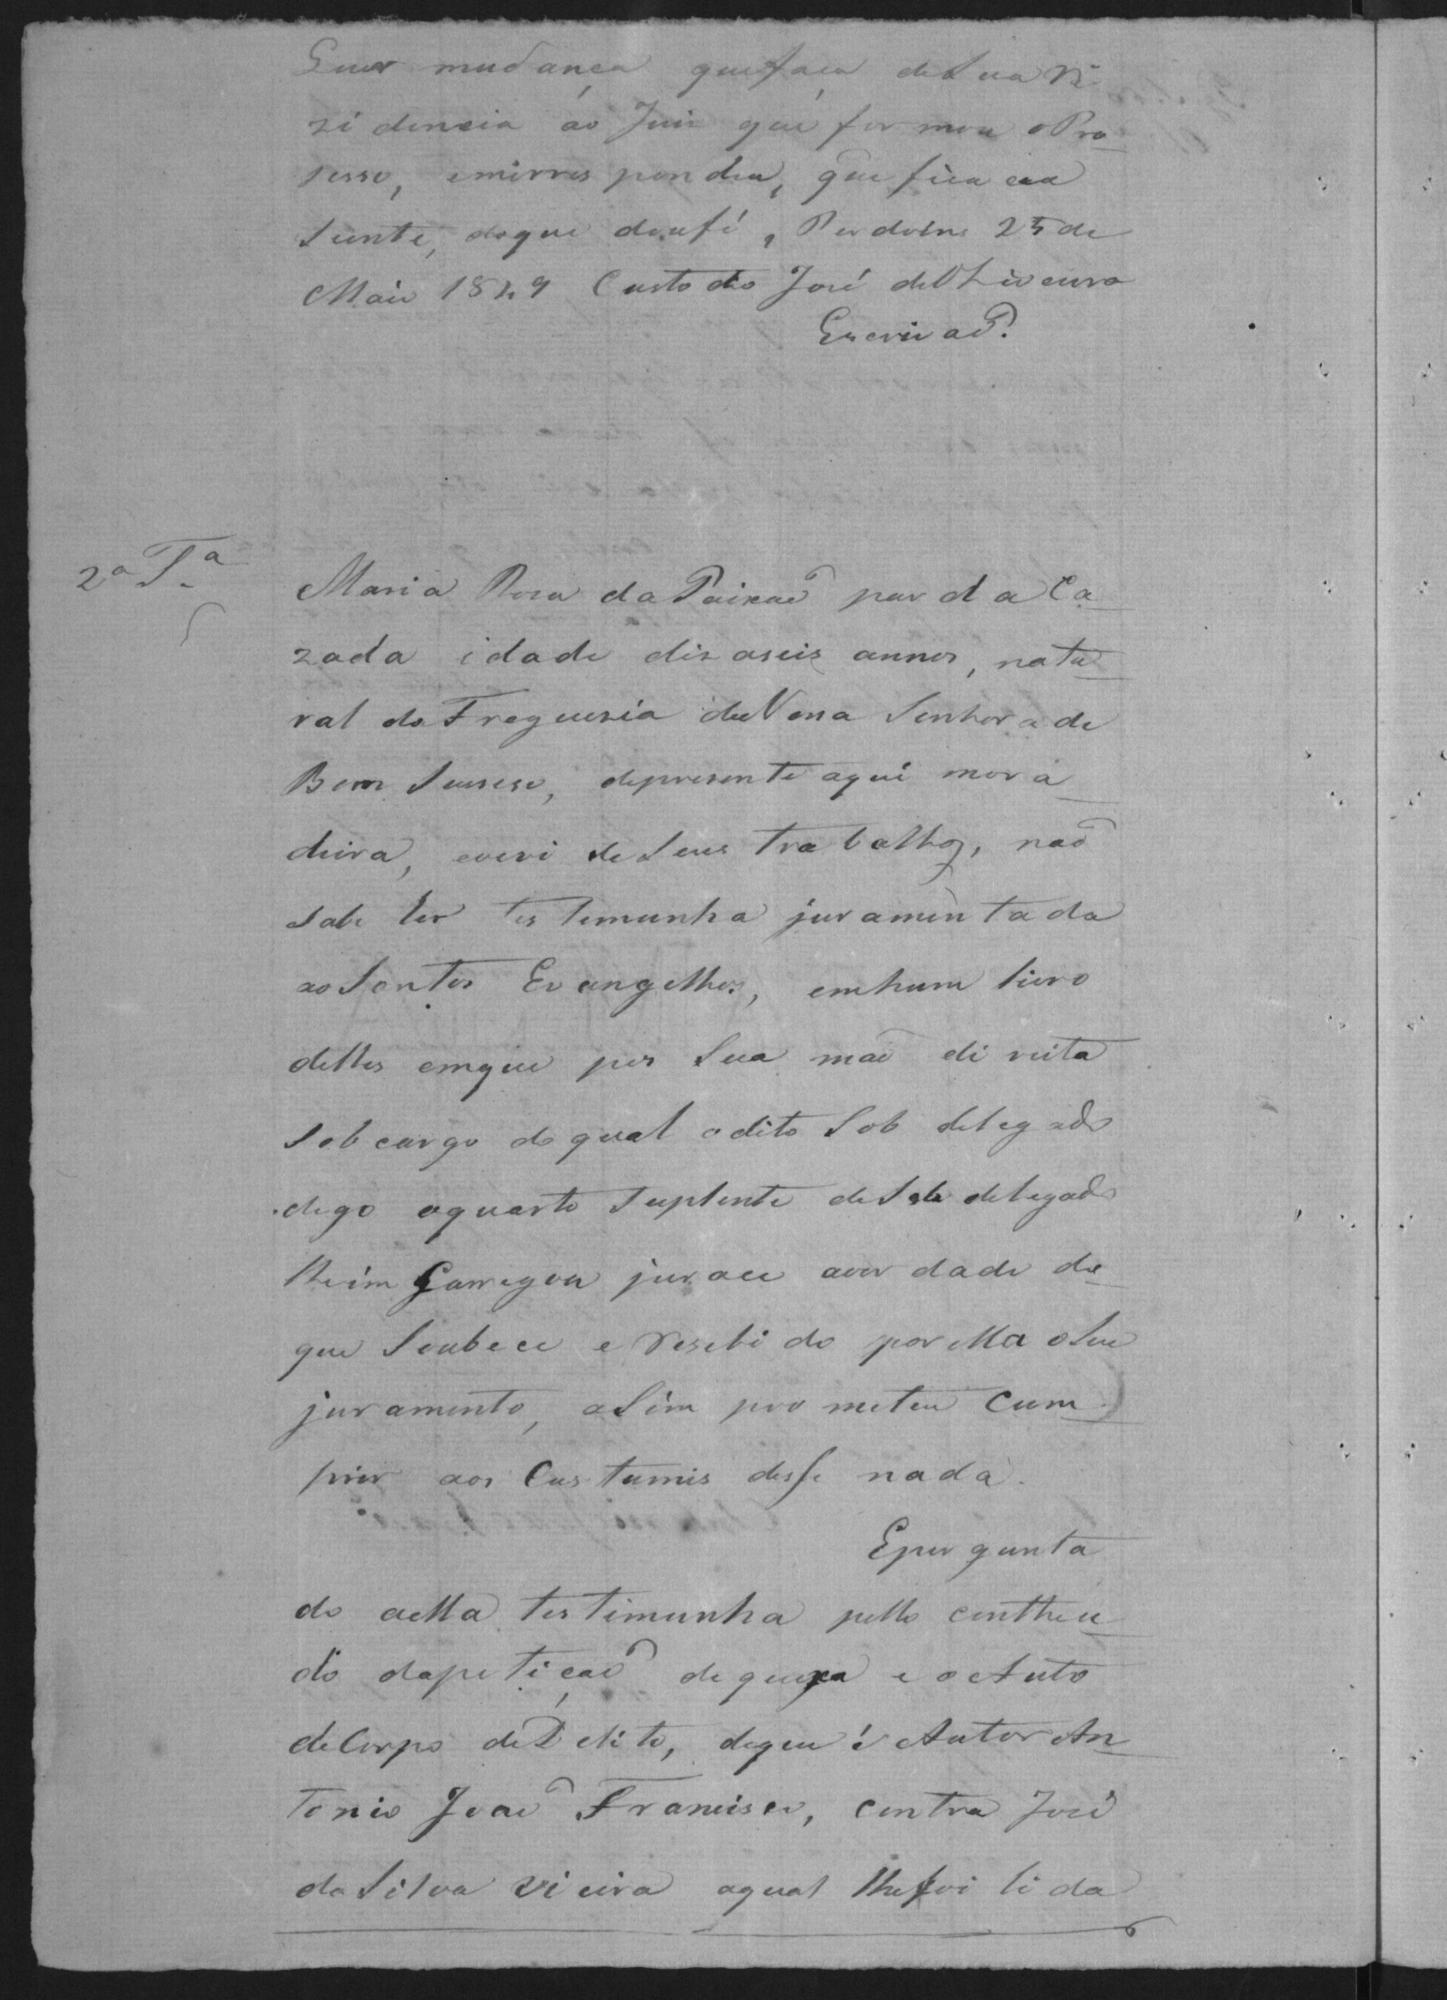 Quer mudança que faça de Sua Ri
zidencia ao Juiz que formou o Pro
sesso, emirres pondeu, que fica cia
Sente, do que dou fé, Perdoins 25 de
Maio 1849 Custodio José de Oliveira
Escrivaõ.
2ª Tª
Maria Rosa da Paixaõ parda Ca
zada idade dizaseis annos, natu
ral da Freguezia de Nosa Senhora de
Bom Suseso, depresente aqui mora
deira, evevi de Seus trabalhos, naõ
Sabe ler testemunha juramentada
ao Santos Evangelhos, em hum livro
delles em que pos Sua maõ direita
Sob cargo do qual o dito Sob delegado
digo o quarto Suplente de Sob delegado
lhe im Carregou jurace averdade do
que Soubece e resebido por ella o Seu
juramento, aSim prometeu Cum
prir aos Custumis disse nada.
E pergunta
do a ella testimunha pello contheu
do da petiçaõ de queixa e o Auto
de Corpo de Delito, de que é Autor An
tonio Joaõ Francisco, contra José
da Silva Vieira a qual lhe foi lida